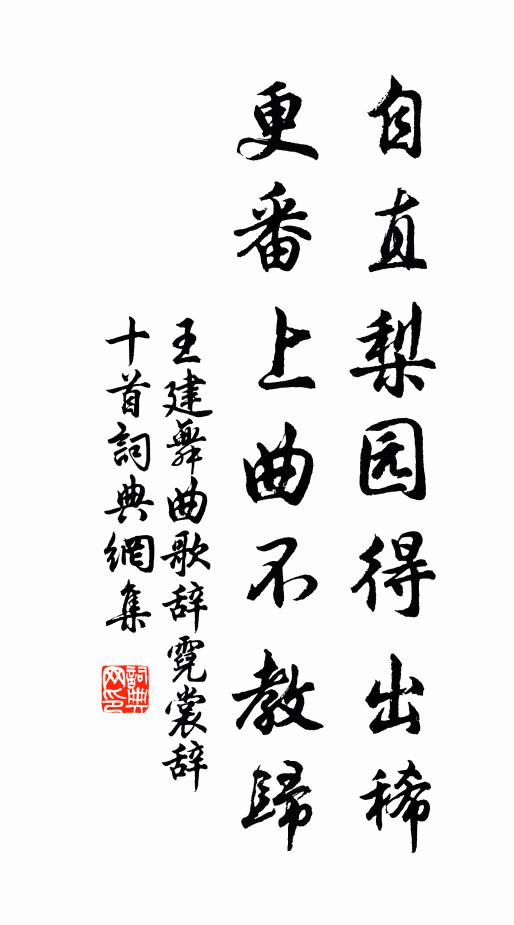 自直梨园得出稀
更番上曲不教歸
王建舞曲歌辞霓裳辞
十首詞典網集
詞典网印